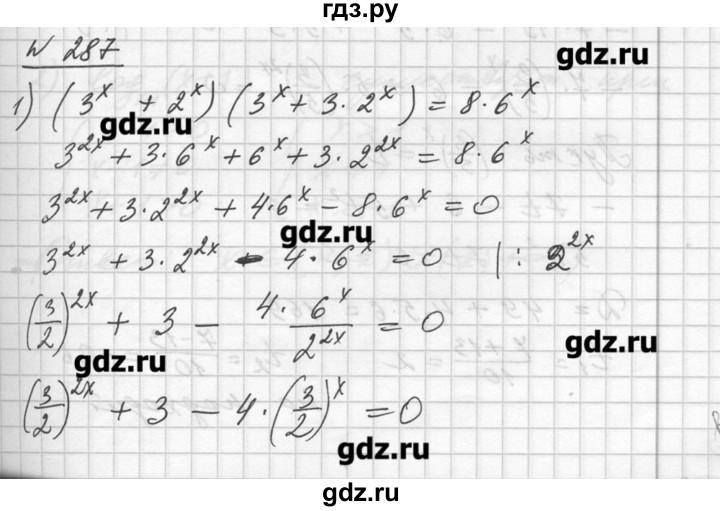 гдз.ру
N 287
gdz.ru
1) (3^x + 2^x)(3^x + 3·2^x) = 8·6^x
gdz.ru
3^{2x} + 3·6^x + 6^x + 3·2^{2x} = 8·6^x
3^{2x} + 3·2^{2x} + 4·6^x − 8·6^x = 0
gdz.ru
3^{2x} + 3·2^{2x} − 4·6^x = 0 | : 2^{2x}
(3/2)^{2x} + 3 − 4·6^x/2^{2x} = 0
gdz.ru
gdz.ru
(3/2)^{2x} + 3 − 4·(3/2)^x = 0
gdz.ru
gdz.ru